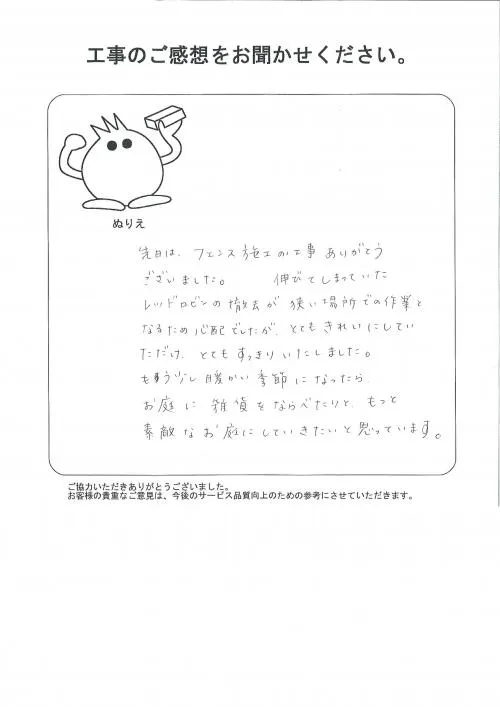 工事のご感想をお聞かせください。
ぬりえ
先日は、フェンス施工の工事 ありがとう
ございました。 伸びてしまっていた
レッドロビンの撤去が 狭い場所での作業と
なるため心配でしたが、とてもきれいにしてい
ただけ、とてもすっきりいたしました。
もう少し暖かい季節になったら、
お庭に 雑貨をならべたりと、もっと
素敵なお庭にしていきたいと思っています。
ご協力いただきありがとうございました。
お客様の貴重なご意見は、今後のサービス品質向上のための参考にさせていただきます。